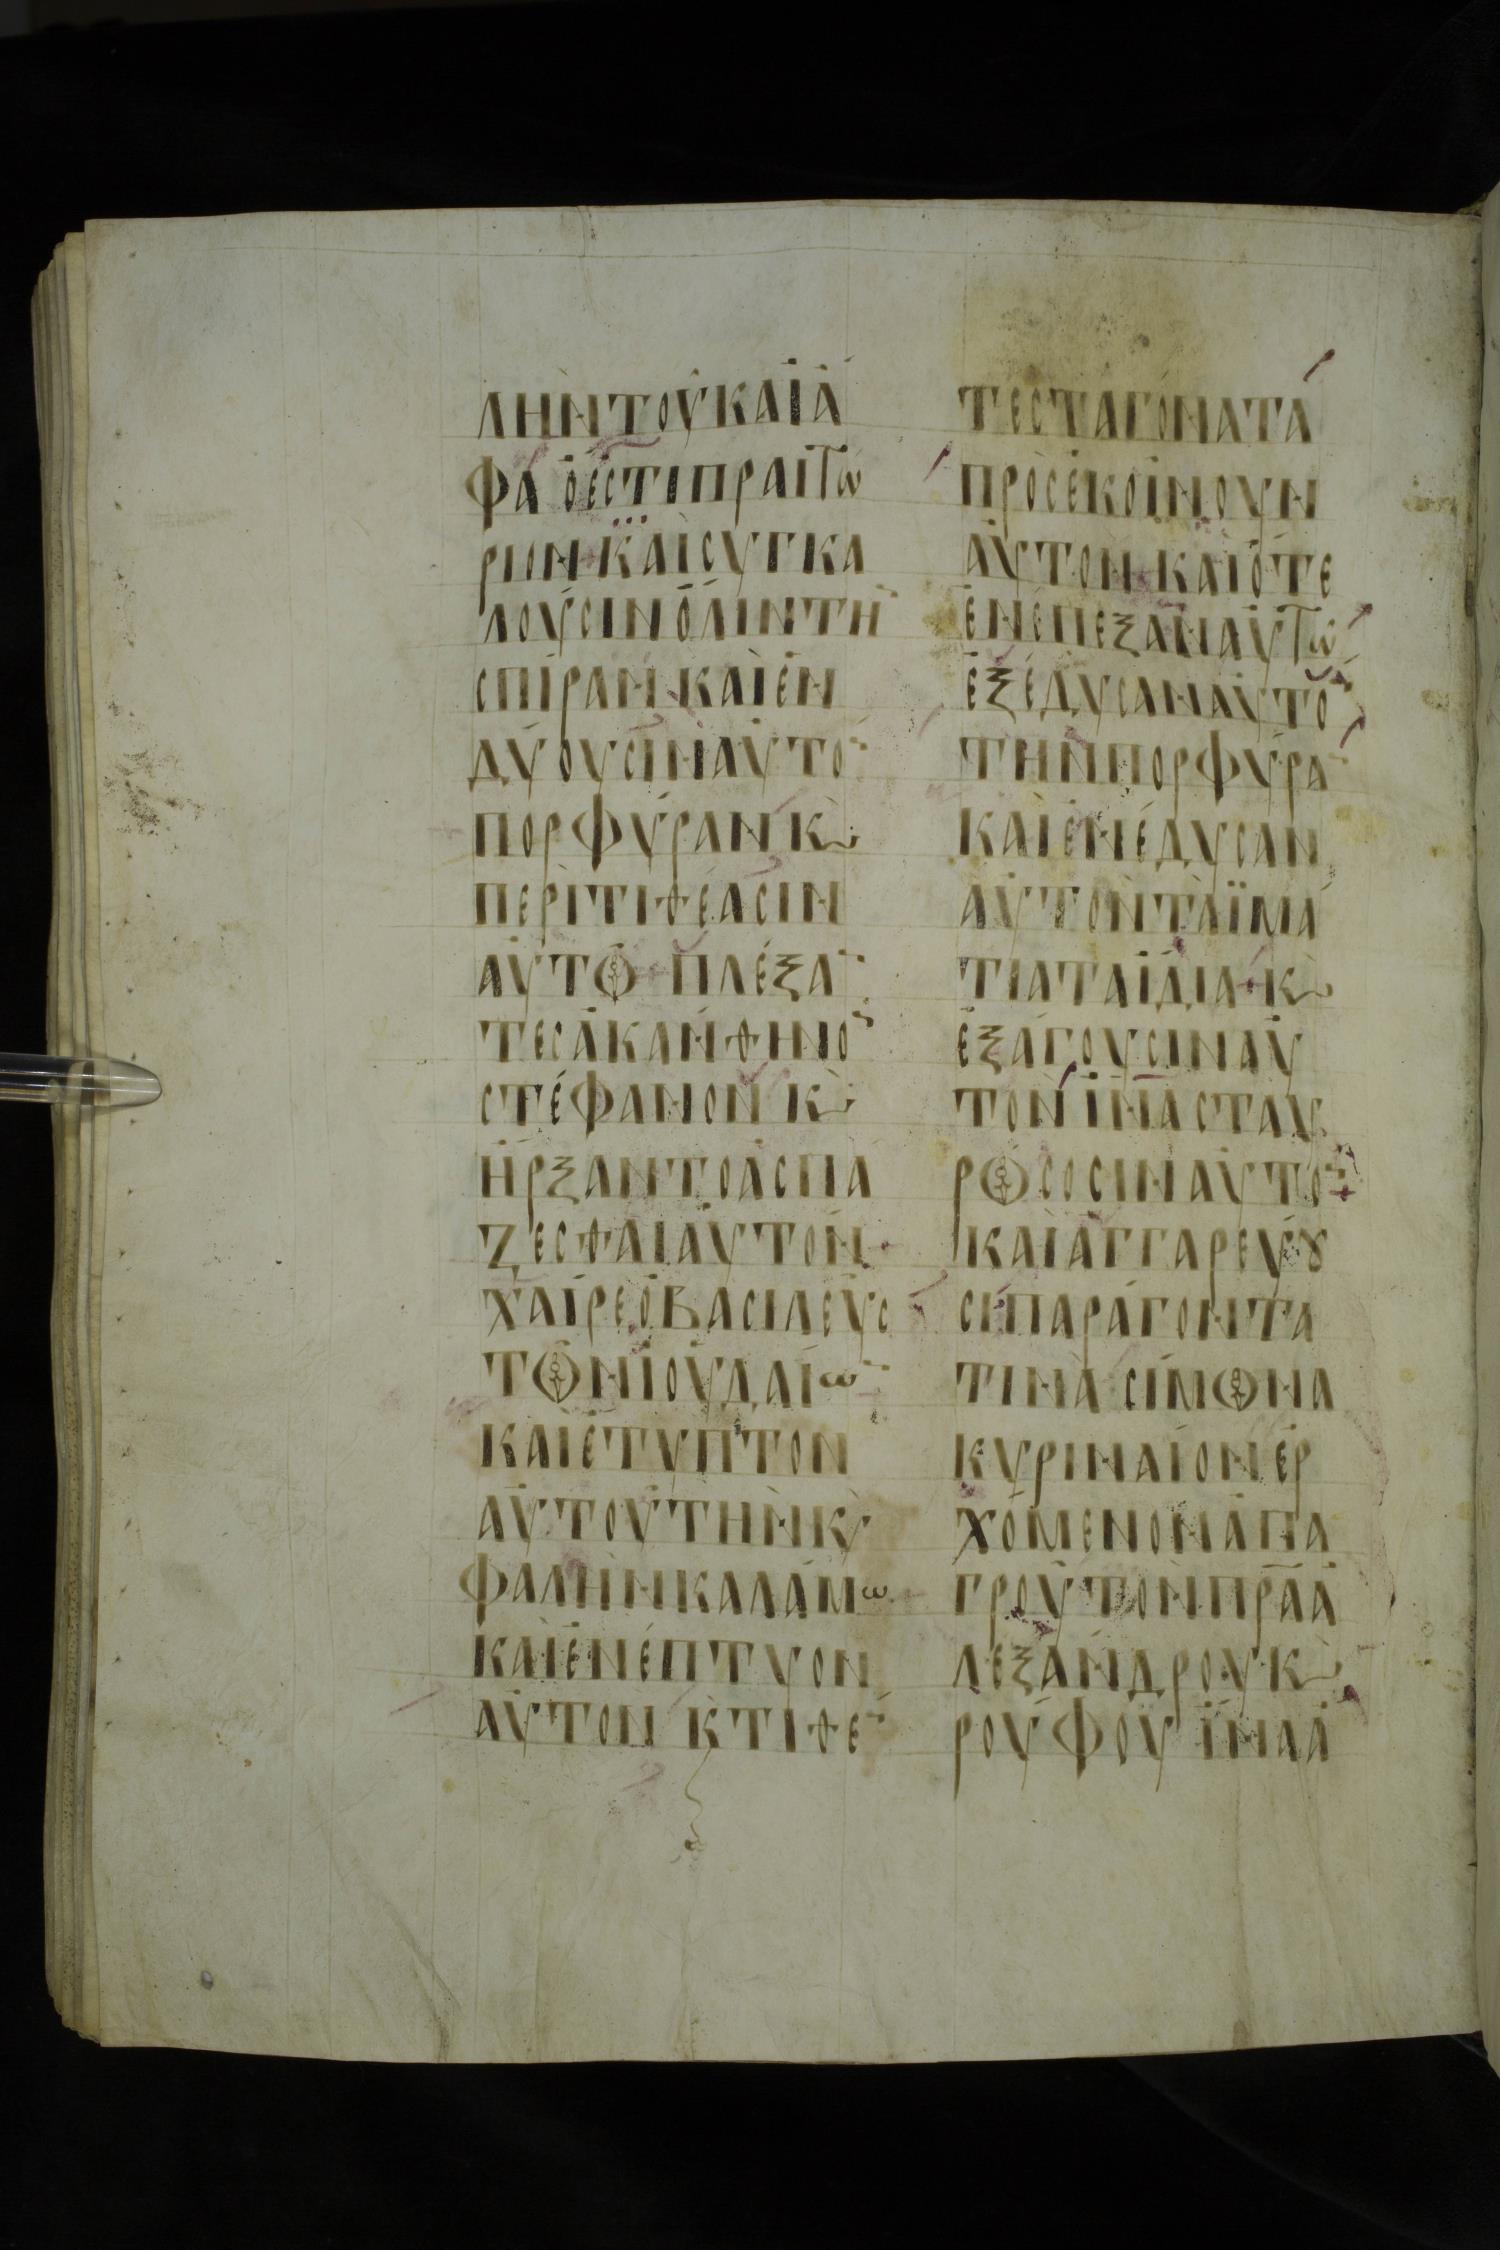 ΛΗΝΤΟΥΚΑΙΑ
ΦΑ ΟΕϹΤΙΠΡΑΙΤω
ΡΙΟΝ ΚΑΙϹΥΓΚΑ
ΛΟΥϹΙΝΟΛΙΝΤΗ̄
ϹΠΙΡΑΝ ΚΑΙΕΝ
ΔΥΟΥϹΙΝΑΥΤΟ̄
ΠΟΡΦΥΡΑΝ Κ̀
ΠΕΡΙΤΙΘΕΑϹΙΝ
ΑΥΤΩ ΠΛΕΞᾹ
ΤΕϹΑΚΑΝΘΗΝΟ̄
ϹΤΕΦΑΝΟΝ Κ̀
ΗΡΞΑΝΤΟΑϹΠΑ
ΖΕϹΘΑΙΑΥΤΟΝ·
ΧΑΙΡΕΟΒΑϹΙΛΕΥϹ
ΤΩΝΙΟΥΔΑΙω̄
ΚΑΙΕΤΥΠΤΟΝ
ΑΥΤΟΥΤΗΝΚΕ
ΦΑΛΗΝΚΑΛΑΜω
ΚΑΙΕΝΕΠΤΥΟΝ
ΑΥΤΟΝ Κ̀ΤΙΘΕ̄
ΤΕϹΤΑΓΟΝΑΤΑ
ΠΡΟϹΕΚΟΙΝΟΥΝ
ΑΥΤΟΝ ΚΑΙΟΤΕ
ΕΝΕΠΕΞΑΝΑΥΤω
ΕΞΕΔΥϹΑΝΑΥΤΟ̄
ΤΗΝΠΟΡΦΥΡᾹ
ΚΑΙΕΝΕΔΥϹΑΝ
ΑΥΤΟΝΤΑΪΜΑ
ΤΙΑΤΑΙΔΙΑ· Κ̀
ΕΞΑΓΟΥϹΙΝΑΥ
ΤΟΝ ΙΝΑϹΤΑΥ
ΡΩϹΟϹΙΝΑΥΤΟ̄
ΚΑΙΑΓΓΑΡΕΥȣ
ϹΙΠΑΡΑΓΟΝΤΑ
ΤΙΝΑ ϹΙΜΩΝΑ
ΚΥΡΙΝΑΙΟΝΕΡ
ΧΟΜΕΝΟΝΑΠΑ
ΓΡΟΥΤΟΝΠΡ̅Α̅Α
ΛΕΞΑΝΔΡΟΥΚ̀
ΡΟΥΦΟΥ ΪΝΑΑ